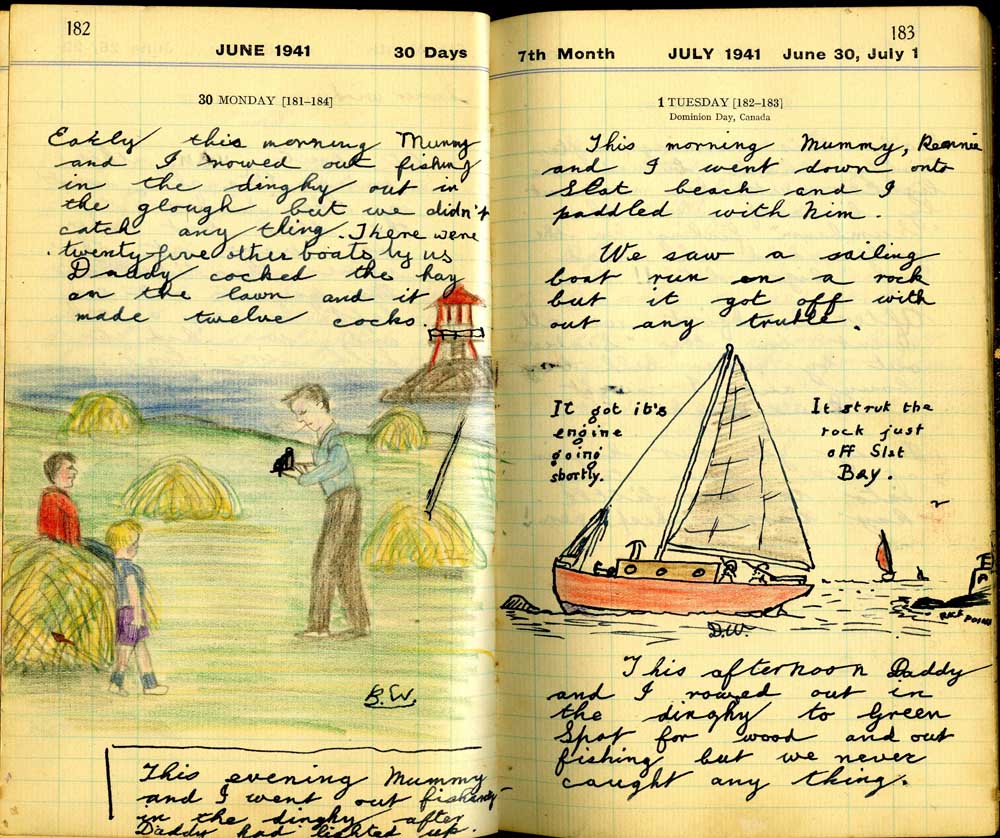 182
JUNE 1941 30 Days
30 MONDAY [181-184]
Eakly this morning Mummy
and I rowed out fishing
in the dinghy out in
the glough but we didn't
catch any thing. There were
twenty-five other boats by us
Daddy cocked the hay
on the lawn and it
made twelve cocks.
B.W.
This evening Mummy
and I went out fishing
in the dinghy after
Daddy had lighted up.
183
7th Month JULY 1941 June 30, July 1
1 TUESDAY [182-183]
Dominion Day, Canada
This morning Mummy, Rennie
and I went down onto
Slat beach and I
paddled with him.
We saw a sailing
boat run on a rock
but it got off with
out any truble.
It got it's
engine
going
shortly.
It struk the
rock just
off Slat
Bay.
D.W.
This afternoon Daddy
and I rowed out in
the dinghy to Green
Spot for wood and out
fishing but we never
caught any thing.